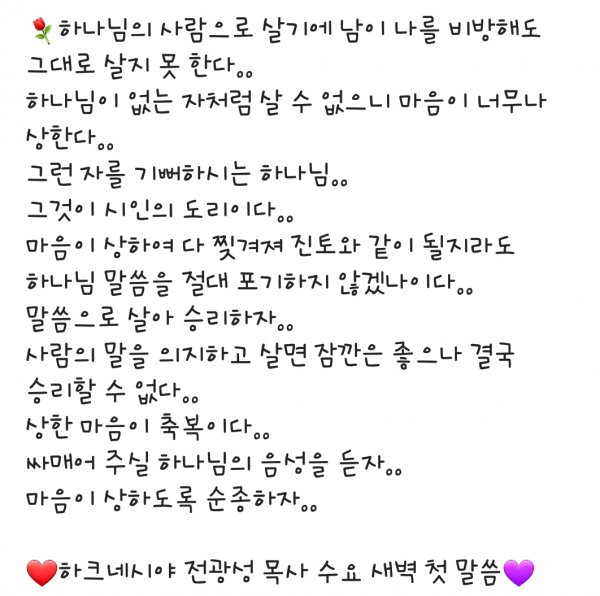 🌹하나님의 사람으로 살기에 남이 나를 비방해도
그대로 살지 못 한다。。
하나님이 없는 자처럼 살 수 없으니 마음이 너무나
상한다。。
그런 자를 기뻐하시는 하나님。。
그것이 시인의 도리이다。。
마음이 상하여 다 찢겨져 진토와 같이 될지라도
하나님 말씀을 절대 포기하지 않겠나이다。。
말씀으로 살아 승리하자。。
사람의 말을 의지하고 살면 잠깐은 좋으나 결국
승리할 수 없다。。
상한 마음이 축복이다。。
싸매어 주실 하나님의 음성을 듣자。。
마음이 상하도록 순종하자。。
❤️하크네시야 전광성 목사 수요 새벽 첫 말씀💜